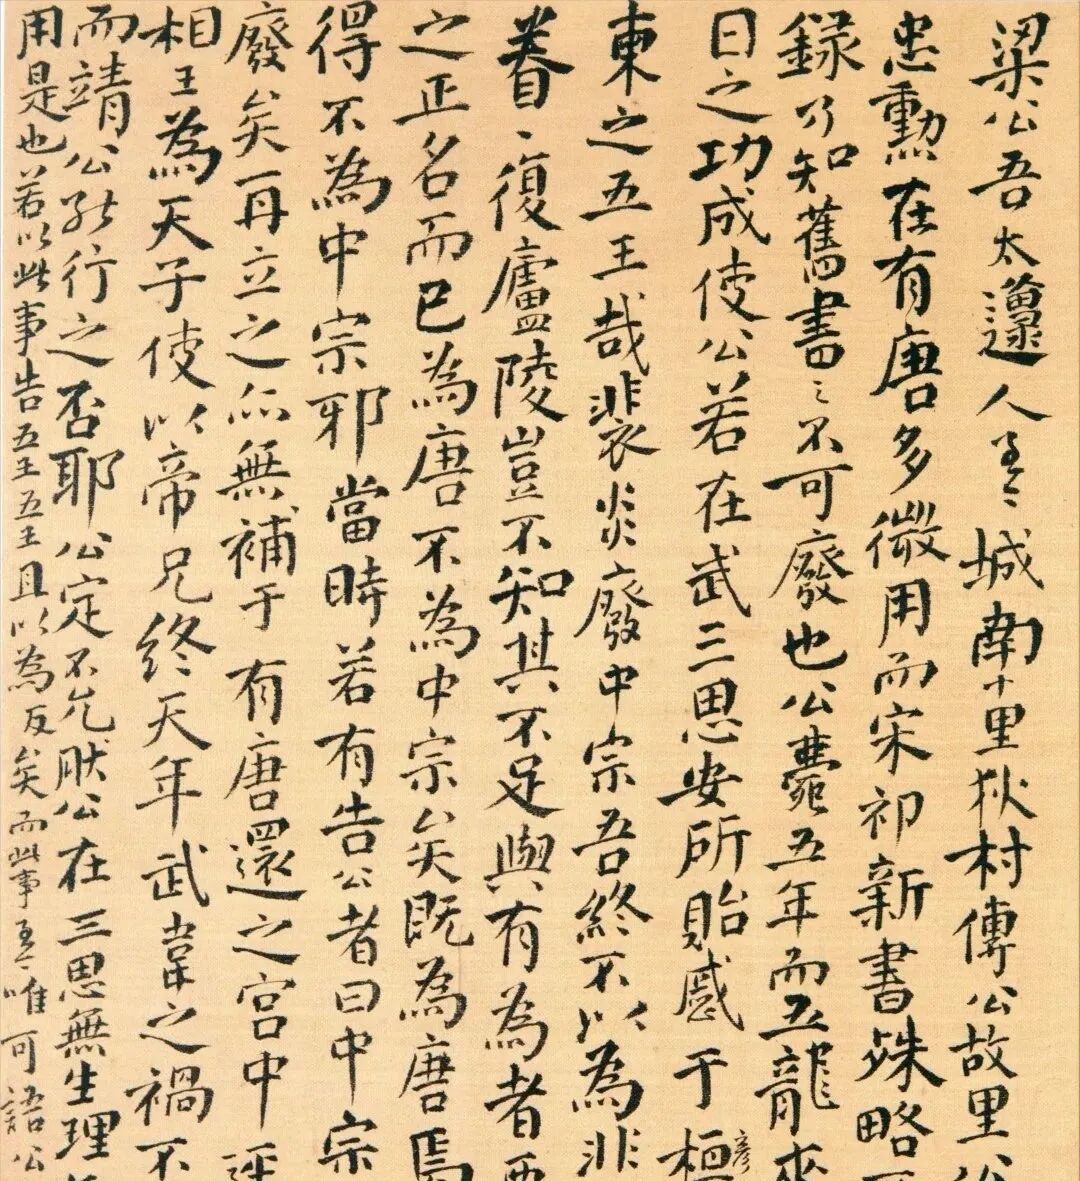 梁公吾太邍人至〻城南十里狄村傳公故里
忠勳在有唐多微用而宋祁新書殊略
錄乃知舊書〻不可廢也公薨五年而五龍夾
日之功成使公若在武三思安所貽慼于桓彥
東之五王哉裴炎廢中宗吾終不以為非
眷〻復廬陵豈不知其不足與有為者
之正名而已為唐不為中宗矣既為唐焉
得不為中宗邪當時若有告公者曰中宗
廢矣再立之亦無補于有唐還之宮中
相王為天子使以帝兄終天年武韋之禍不
而靖公能行之否耶公定不允肰公在三思無生理
用是也若以此事告五王五王且以為反矣而此事至〻唯可語公